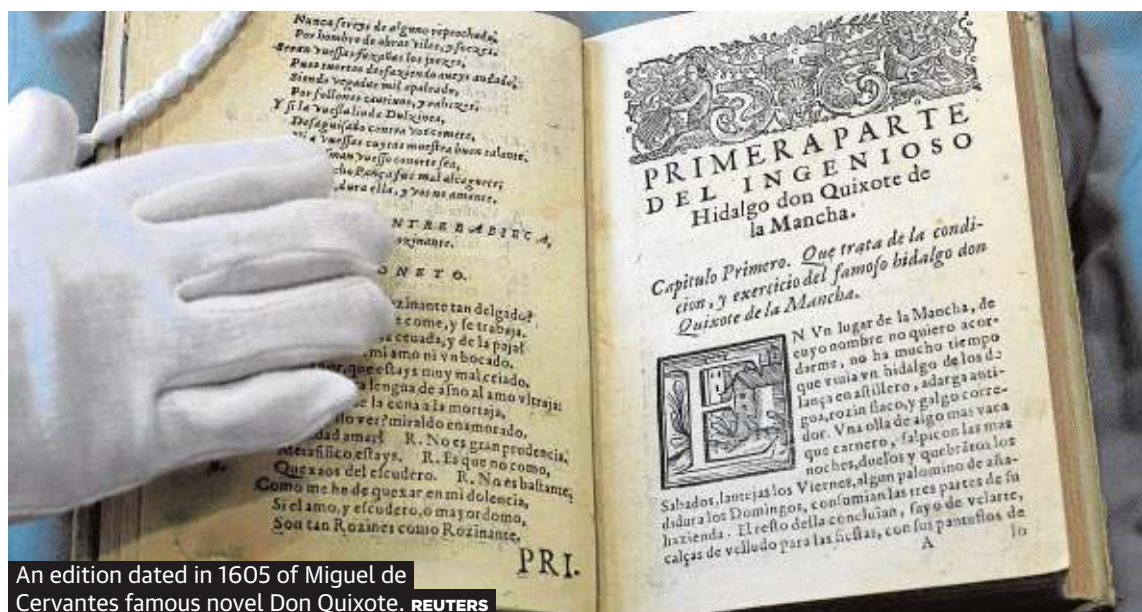 Nunca ſereys de alguno reprochado,
Por hombre de obras viles, y ſoezes.
Seran vueſſas fazañas los joezes,
Pues tuertos desfaziendo aueys andado,
Siendo vegadas mil apaleado,
Por follones cautiuos, y rahezes;
Y ſi la vueſſa linda Dulzinea,
Deſaguiſado contra vos comete,
Ni a vueſſas cuytas mueſtra buen talante.
vueſſo conorte ſea,
Pança fue mal alcaguete;
dura ella, y vos no amante.
BABIECA,
tan delgado?
come, y ſe trabaja.
ceuada, y de la paja?
mi amo ni vn bocado.
que eſtays muy mal criado.
lengua de aſno al amo vltraja:
la cuna a la mortaja,
ver? miraldo enamorado.
amar? R. No es gran prudencia.
Metafiſico eſtays. R. Es que no como,
Quexaos del eſcudero. R. No es baſtante,
Como me he de quexar en mi dolencia,
Si el amo, y eſcudero, o mayordomo,
Son tan Rozines como Rozinante.
PRI.
PRIMERA PARTE
DEL INGENIOSO
Hidalgo don Quixote de
la Mancha.
Capitulo Primero. Que trata de la condi-
cion, y exercicio del famoſo hidalgo don
Quixote de la Mancha.
EN Vn lugar de la Mancha, de
cuyo nombre no quiero acor-
darme, no ha mucho tiempo
que viuia vn hidalgo de los de
lança en aſtillero, adarga anti-
gua, rozin flaco, y galgo corre-
dor. Vna olla de algo mas vaca
que carnero, ſalpicon las mas
noches, duelos y quebrãtos los
Sabados, lantejas los Viernes, algun palomino de aña-
didura los Domingos, conſumian las tres partes de ſu
hazienda. El reſto della concluian, ſayo de velarte,
calças de velludo para las fieſtas, con ſus pantuflos de
A lo
An edition dated in 1605 of Miguel de
Cervantes famous novel Don Quixote. REUTERS